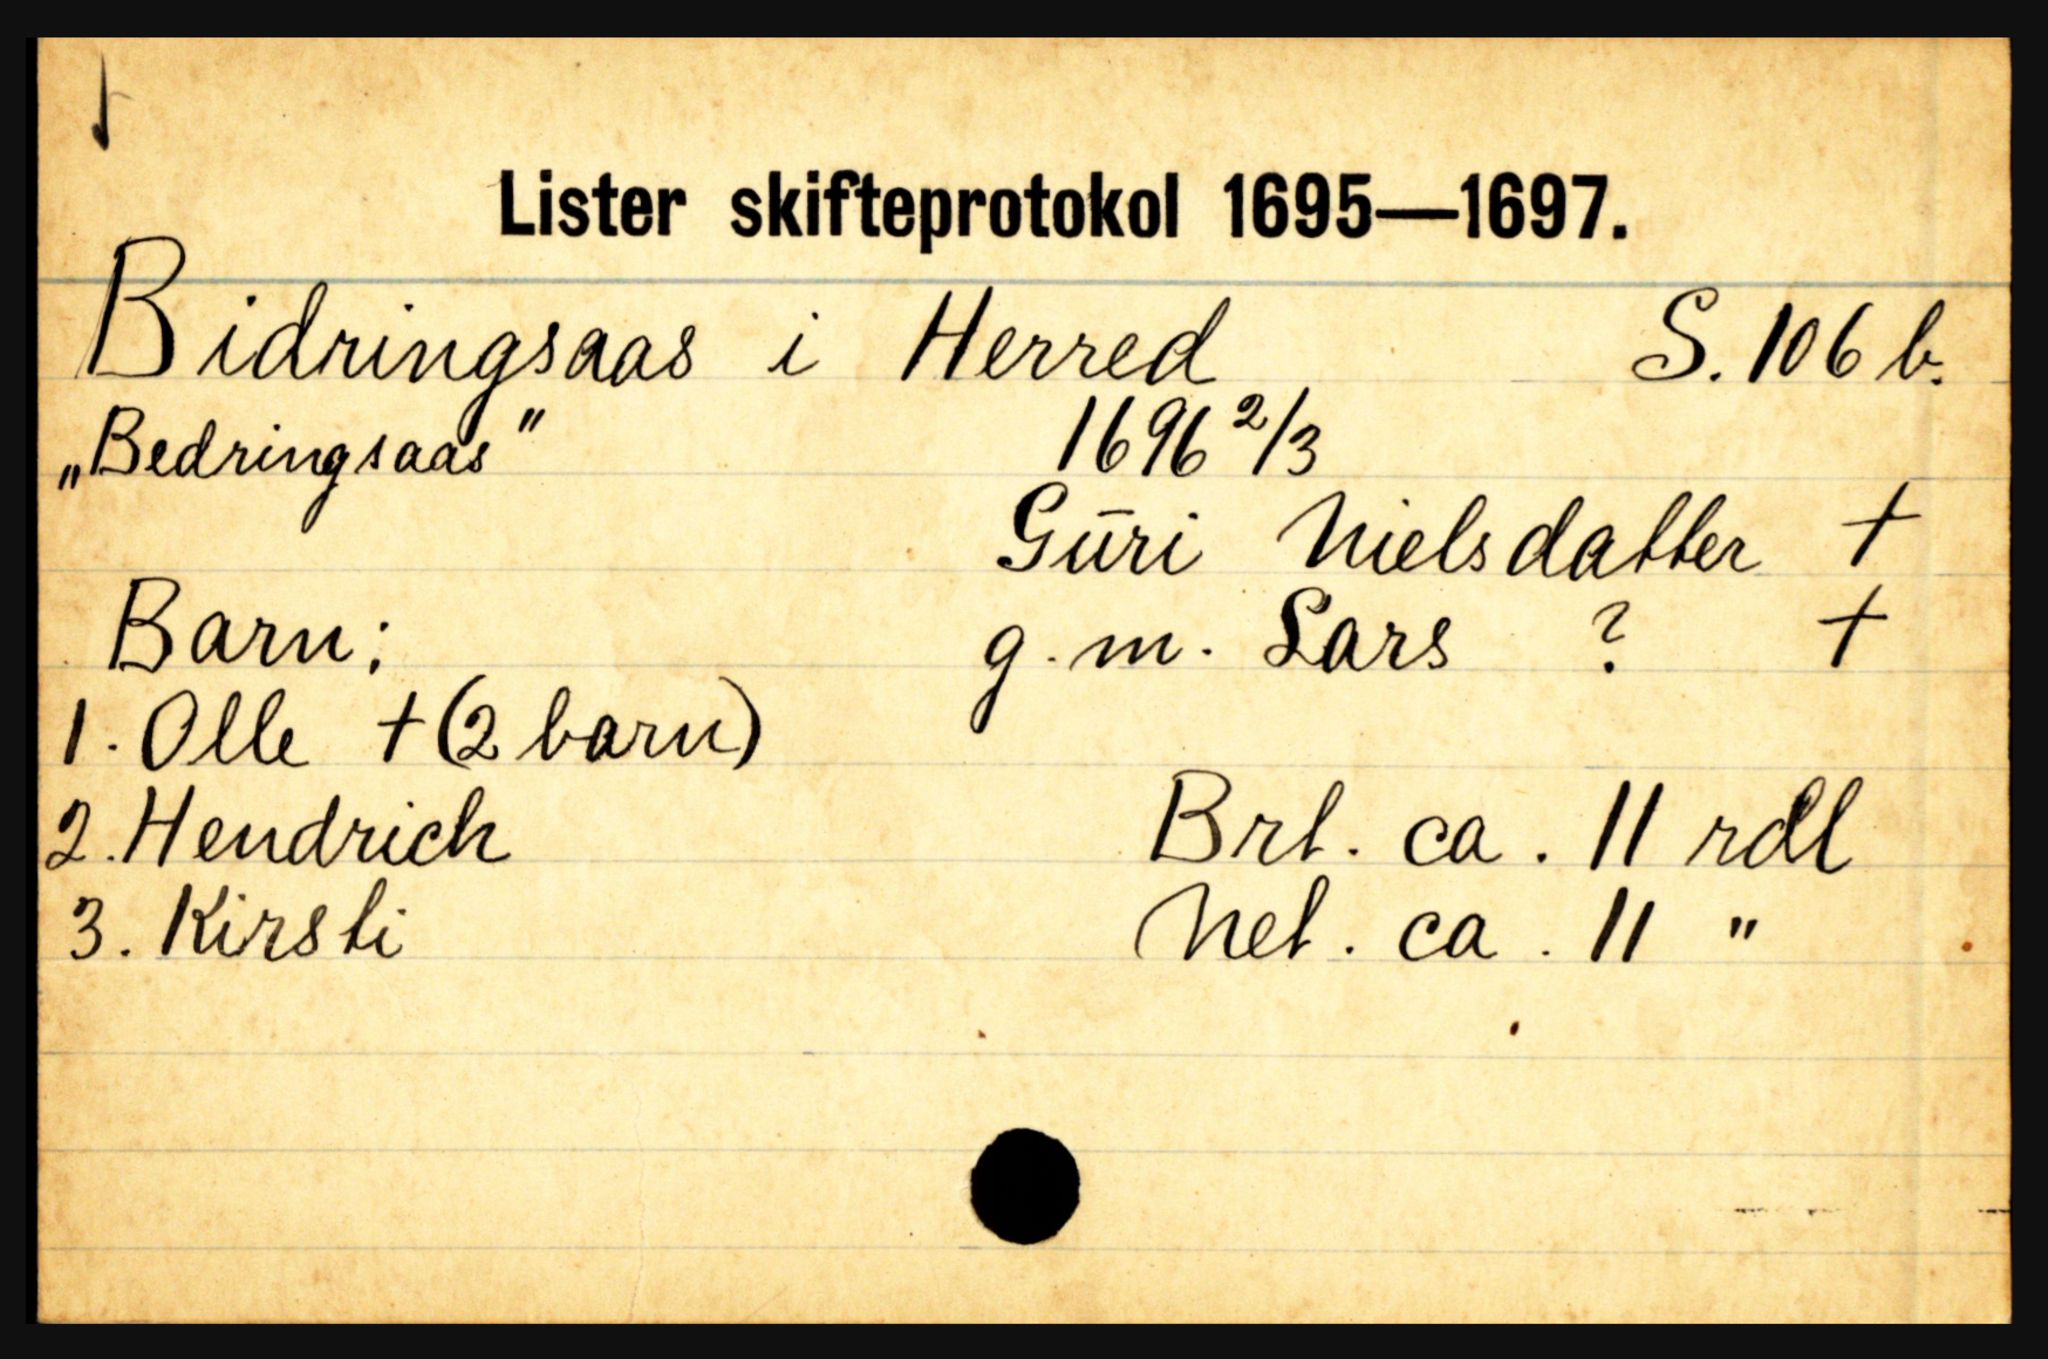 Lister skifteprotokol 1695—1697.
Bidringsaas i Herred S. 106 b.
„Bedringsaas" 1696 2/3
Gūri Nielsdatter †
Barn: g.m. Lars ? †
1. Olle † (2 barn)
2. Hendrich Brt. ca. 11 rdl
3. Kirsti Net. ca. 11 "